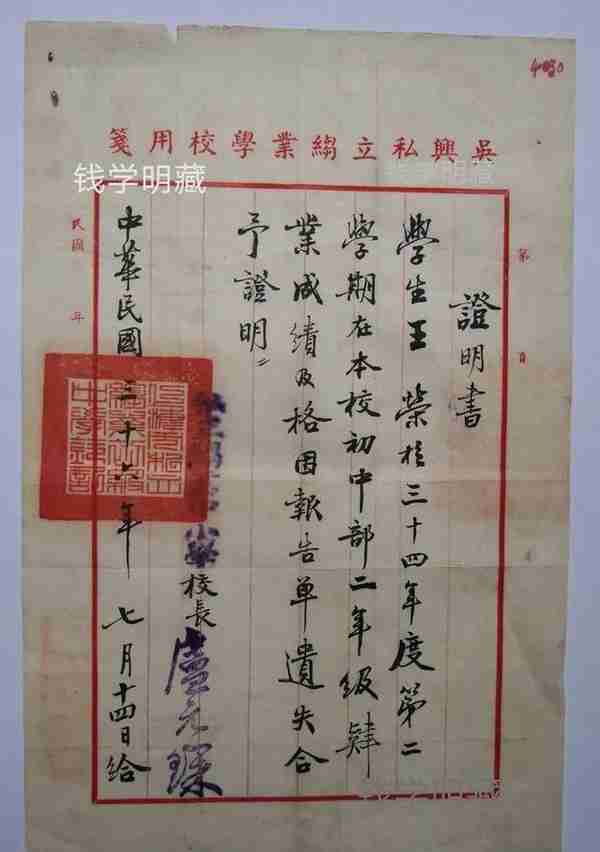 吳興私立縐業學校用箋
證明書
學生王 榮於三十四年度第二
學期在本校初中部二年級肄
業成績及格因報告單遺失合
予證明
校長
盧
中華民國三十六年七月十四日給
第 頁
民國 年
钱学明藏
钱学明藏